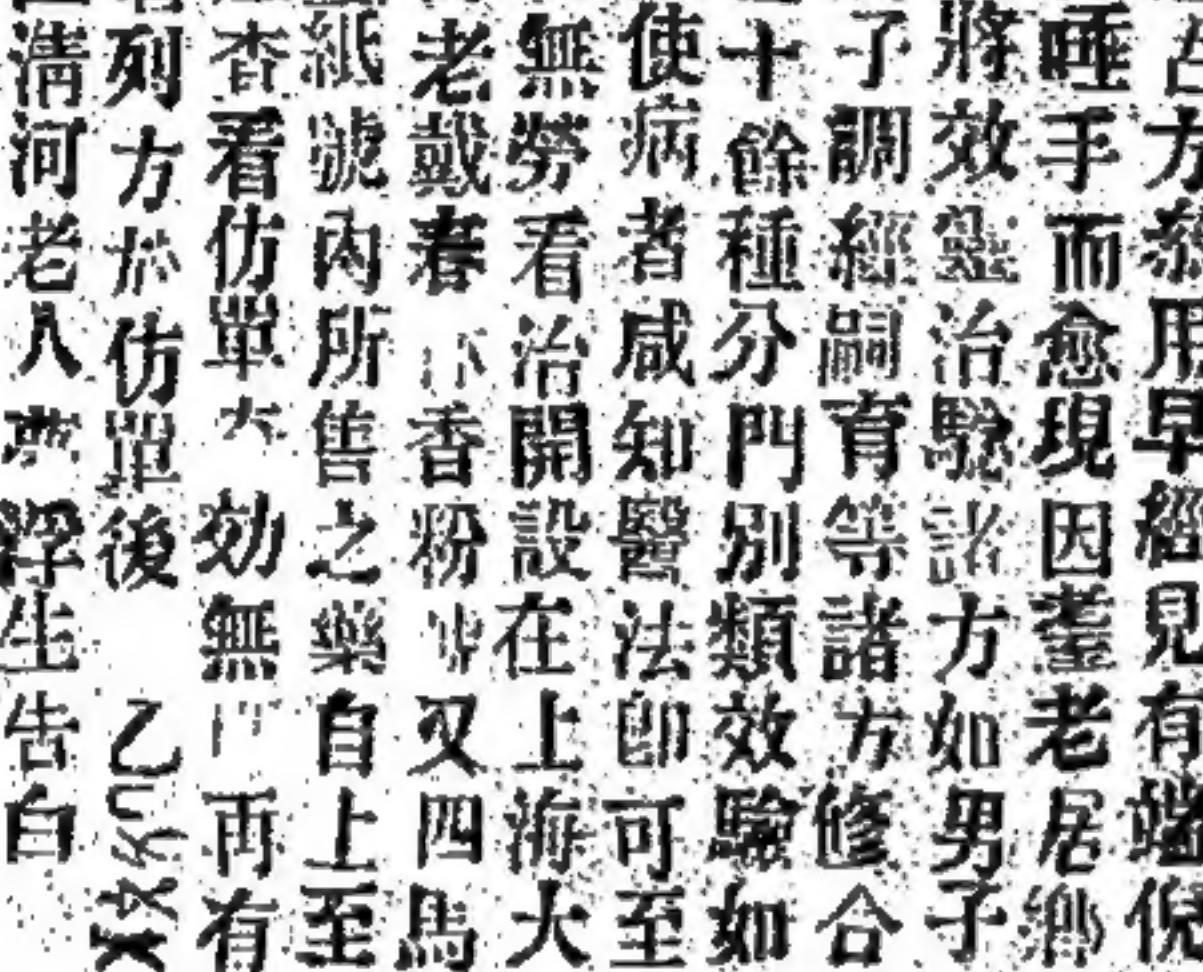 古方泰用早經見有端倪
唾手而愈現因耋老居鄉
將效靈治驗諸方如男子
了調經嗣育等諸方修合
十餘種分門別類效驗如
使病者咸知醫法即可至
無勞看治開設在上海大
老戴春香粉又四馬
紙號內所售之藥自上至
杏看仿單大効無兩有
列方於仿單後乙
清河老人夢浮生告白